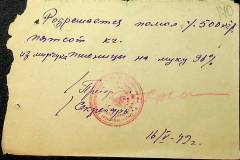 „Разрешается помол 1.500 кгр
пятсот кг.
из мирчука пшеницы на муку 96%
Предс
Секретарь
16/V-49 г.